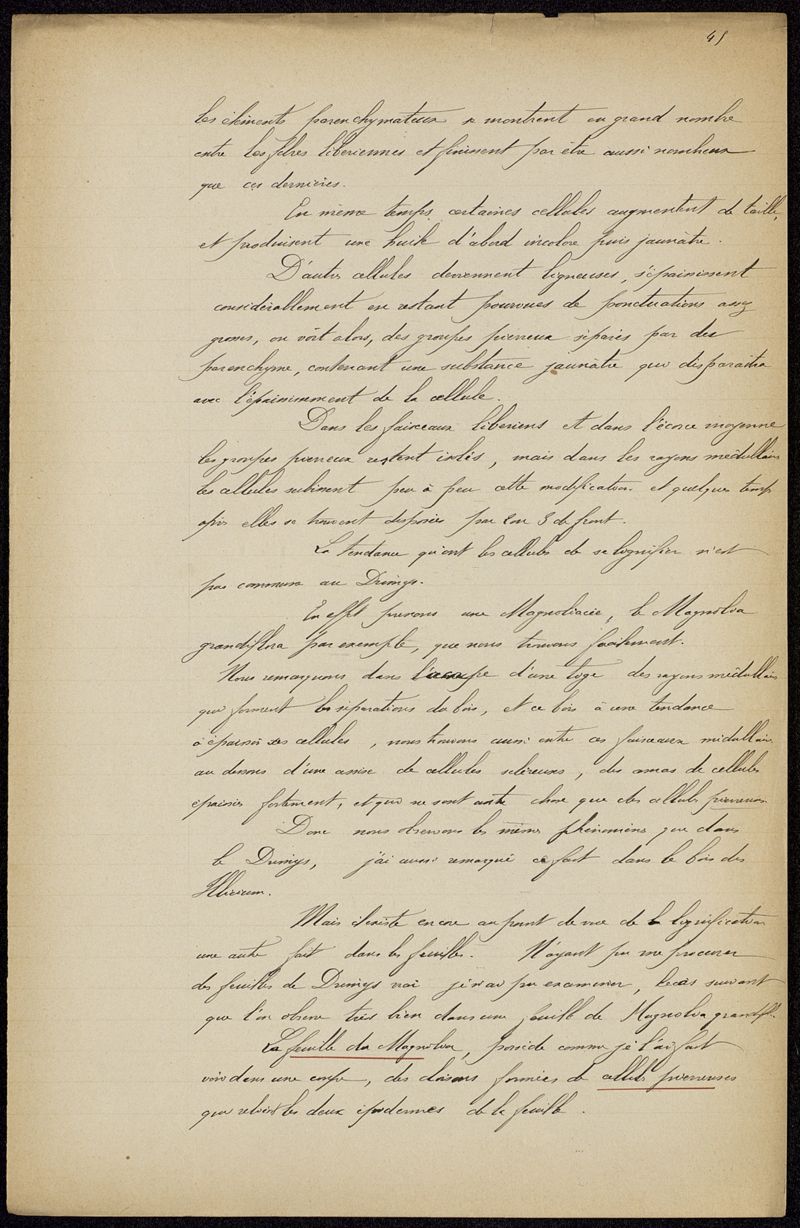 45
les éléments parenchymateux se montrent en grand nombre
entre les fibres libériennes et finissent par être aussi nombreux
que ces dernières.
En même temps, certaines cellules augmentent de taille,
et produisent une huile d'abord incolore puis jaunâtre.
D'autres cellules deviennent ligneuses, s'épaississent
considérablement en restant pourvues de ponctuations assez
grosses, on voit alors, des groupes pierreux séparés par des
parenchyme, contenant une substance jaunâtre qui disparaîtra
avec l'épaississement de la cellule.
Dans les faisceaux libériens et dans l'écorce moyenne
les groupes pierreux restent isolés, mais dans les rayons médullaires
les cellules subissent peu à peu cette modification et quelques temps
après elles se trouvent disposées par 2 ou 3 de front.
La tendance qu'ont les cellules de se lignifier n'est
pas commune au Drimys.
En effet prenons une Magnoliacée, le Magnolia
grandiflora par exemple, que nous trouvons facilement.
Nous remarquons dans la coupe d'une tige des rayons médullaires
qui forment les séparations du bois, et ce bois à une tendance
à épaissir ses cellules, nous trouvons aussi entre ces faisceaux médullaires
au dessous d'une assise de cellules scléreuses, des amas de cellules
épaissies fortement, et qui ne sont autre chose que des cellules pierreuses.
Donc nous observons les mêmes phénomènes que dans
le Drimys, j'ai aussi remarqué ce fait dans le bois des
Illicium.
Mais il existe encore au point de vue de la lignification
une autre fait dans les feuilles. N'ayant pu me procurer
des feuilles de Drimys vrai je n'ai pu examiner, le cas suivant
que l'on observe très bien dans une feuille de Magnolia grandifl.
La feuille du Magnolia, possède comme je l'ai fait
voir dans une coupe, des cloisons formées de cellules pierreuses
qui relient les deux épidermes de la feuille.